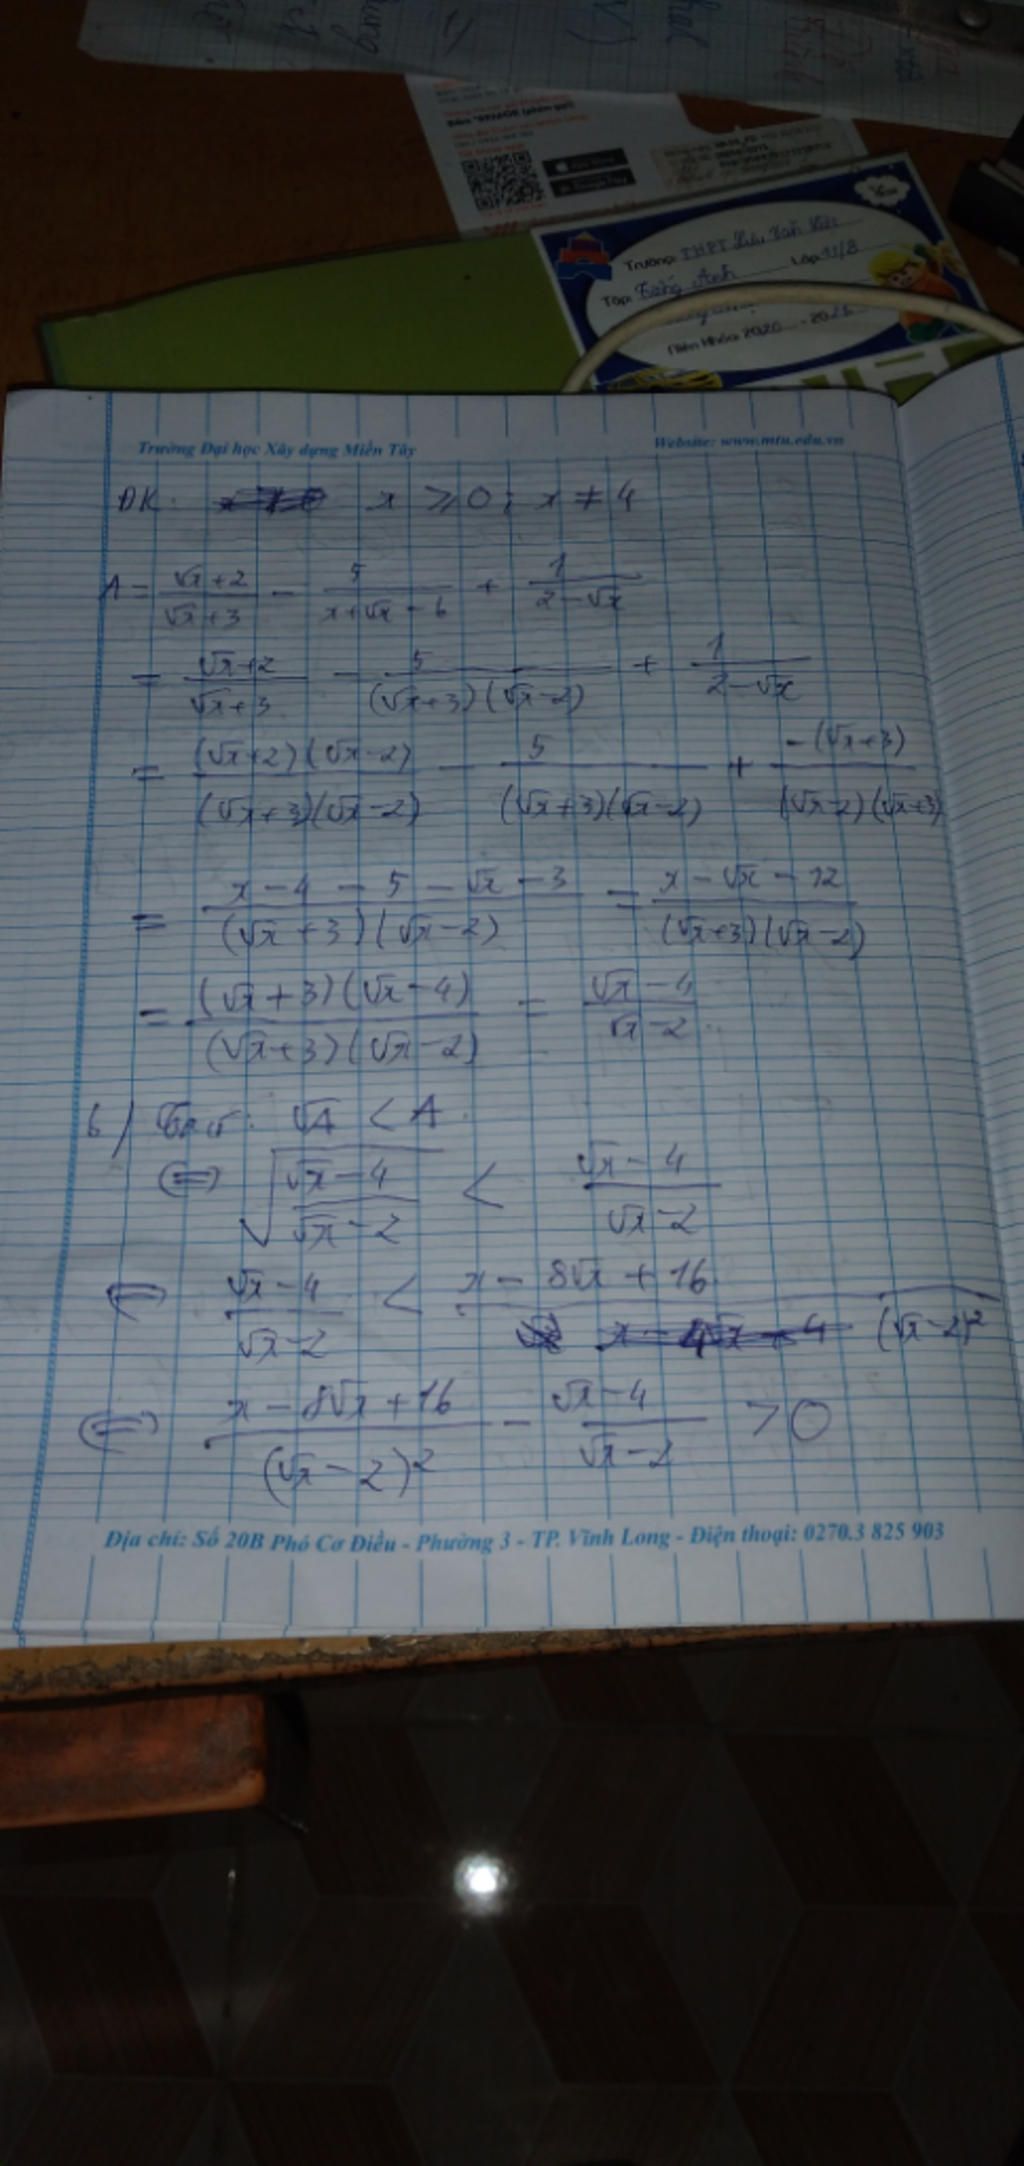 Trường: THPT
Tập: Tiếng Anh Lớp: 11/8
Niên Khóa: 2020 - 2021
Trường Đại học Xây dựng Miền Tây Website: www.mtu.edu.vn
ĐK: x ≥ 0; x ≠ 4
A = (√x+2)/(√x+3) - 5/(x+√x-6) + 1/(2-√x)
= (√x+2)/(√x+3) - 5/((√x+3)(√x-2)) + 1/(2-√x)
= ((√x+2)(√x-2))/((√x+3)(√x-2)) - 5/((√x+3)(√x-2)) + (-(√x+3))/((√x-2)(√x+3))
= (x-4-5-√x-3)/((√x+3)(√x-2)) = (x-√x-12)/((√x+3)(√x-2))
= ((√x+3)(√x-4))/((√x+3)(√x-2)) = (√x-4)/(√x-2)
b/ √A < A
<=> √((√x-4)/(√x-2)) < (√x-4)/(√x-2)
<=> (√x-4)/(√x-2) < (x-8√x+16)/(√x-2)²
<=> (x-8√x+16)/(√x-2)² - (√x-4)/(√x-2) > 0
Địa chỉ: Số 20B Phó Cơ Điều - Phường 3 - TP. Vĩnh Long - Điện thoại: 0270.3 825 903